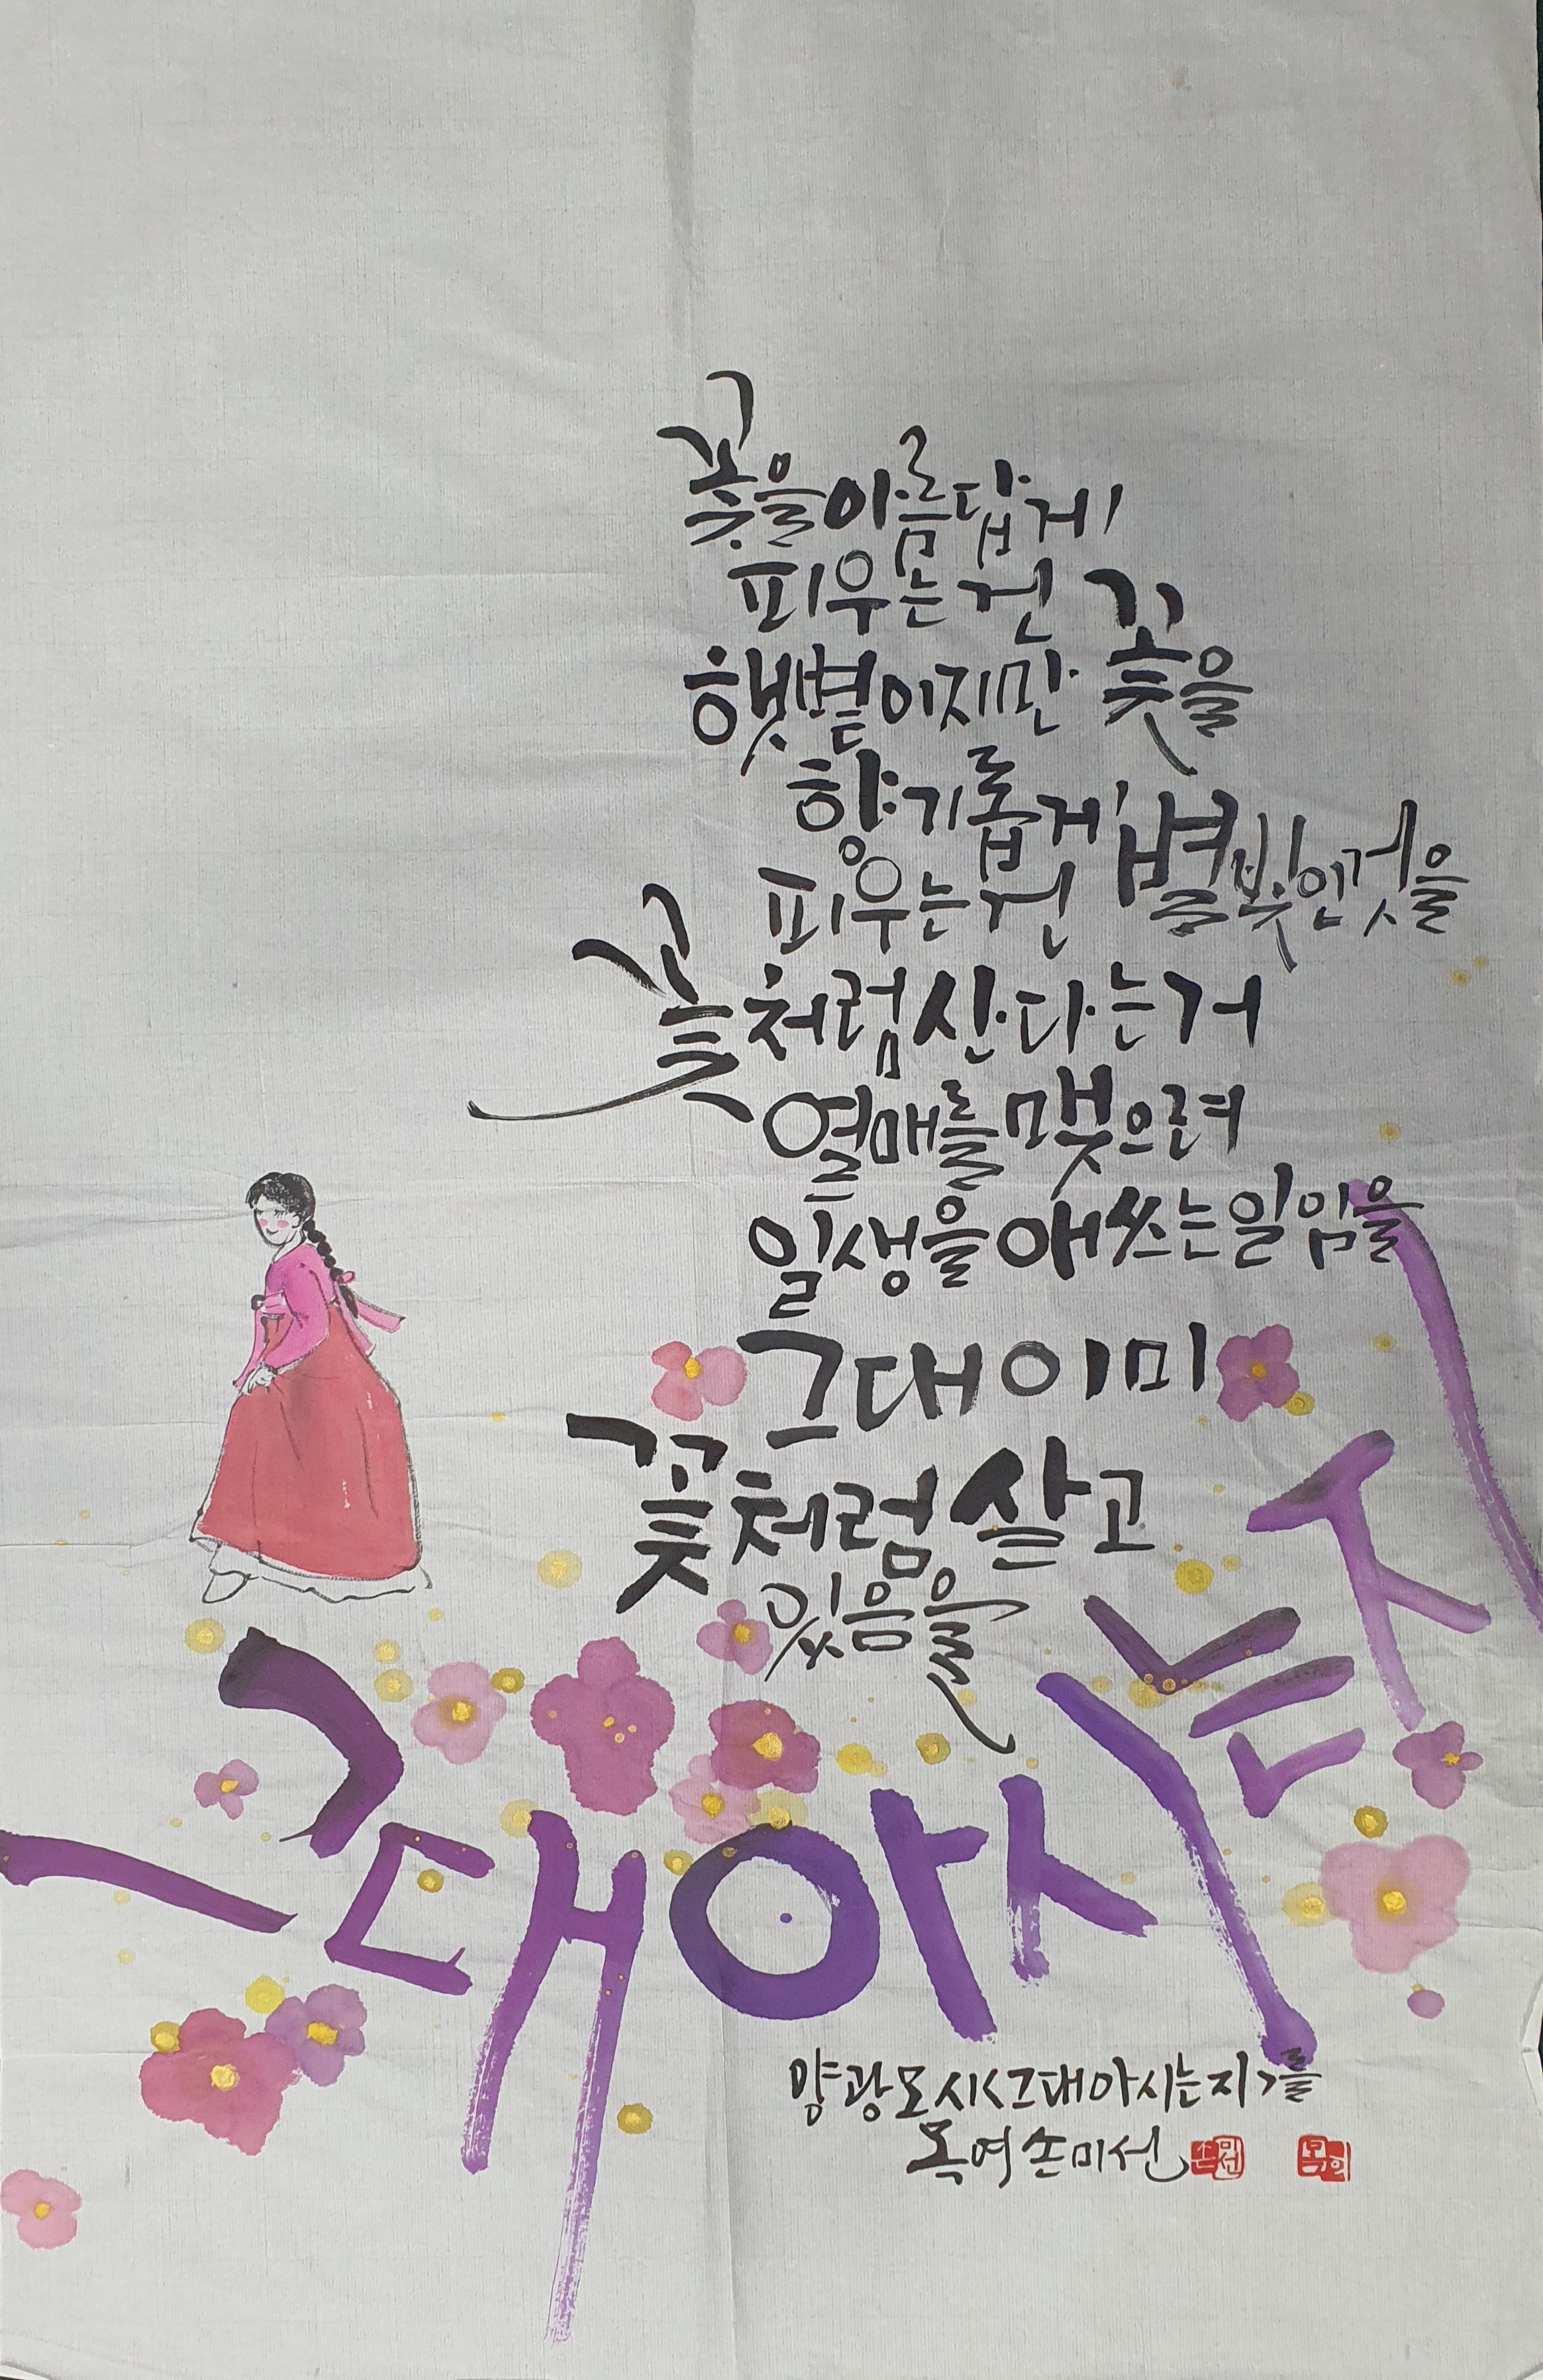 꽃을 아름답게
피우는 건
햇볕이지만 꽃을
향기롭게
피우는 건 별빛인 것을
꽃처럼 산다는 거
열매를 맺으려
일생을 애쓰는 일임을
그대 이미
꽃처럼 살고
있음을
그대 아시는지
양광모 시<그대 아시는지>를
목여 손미선